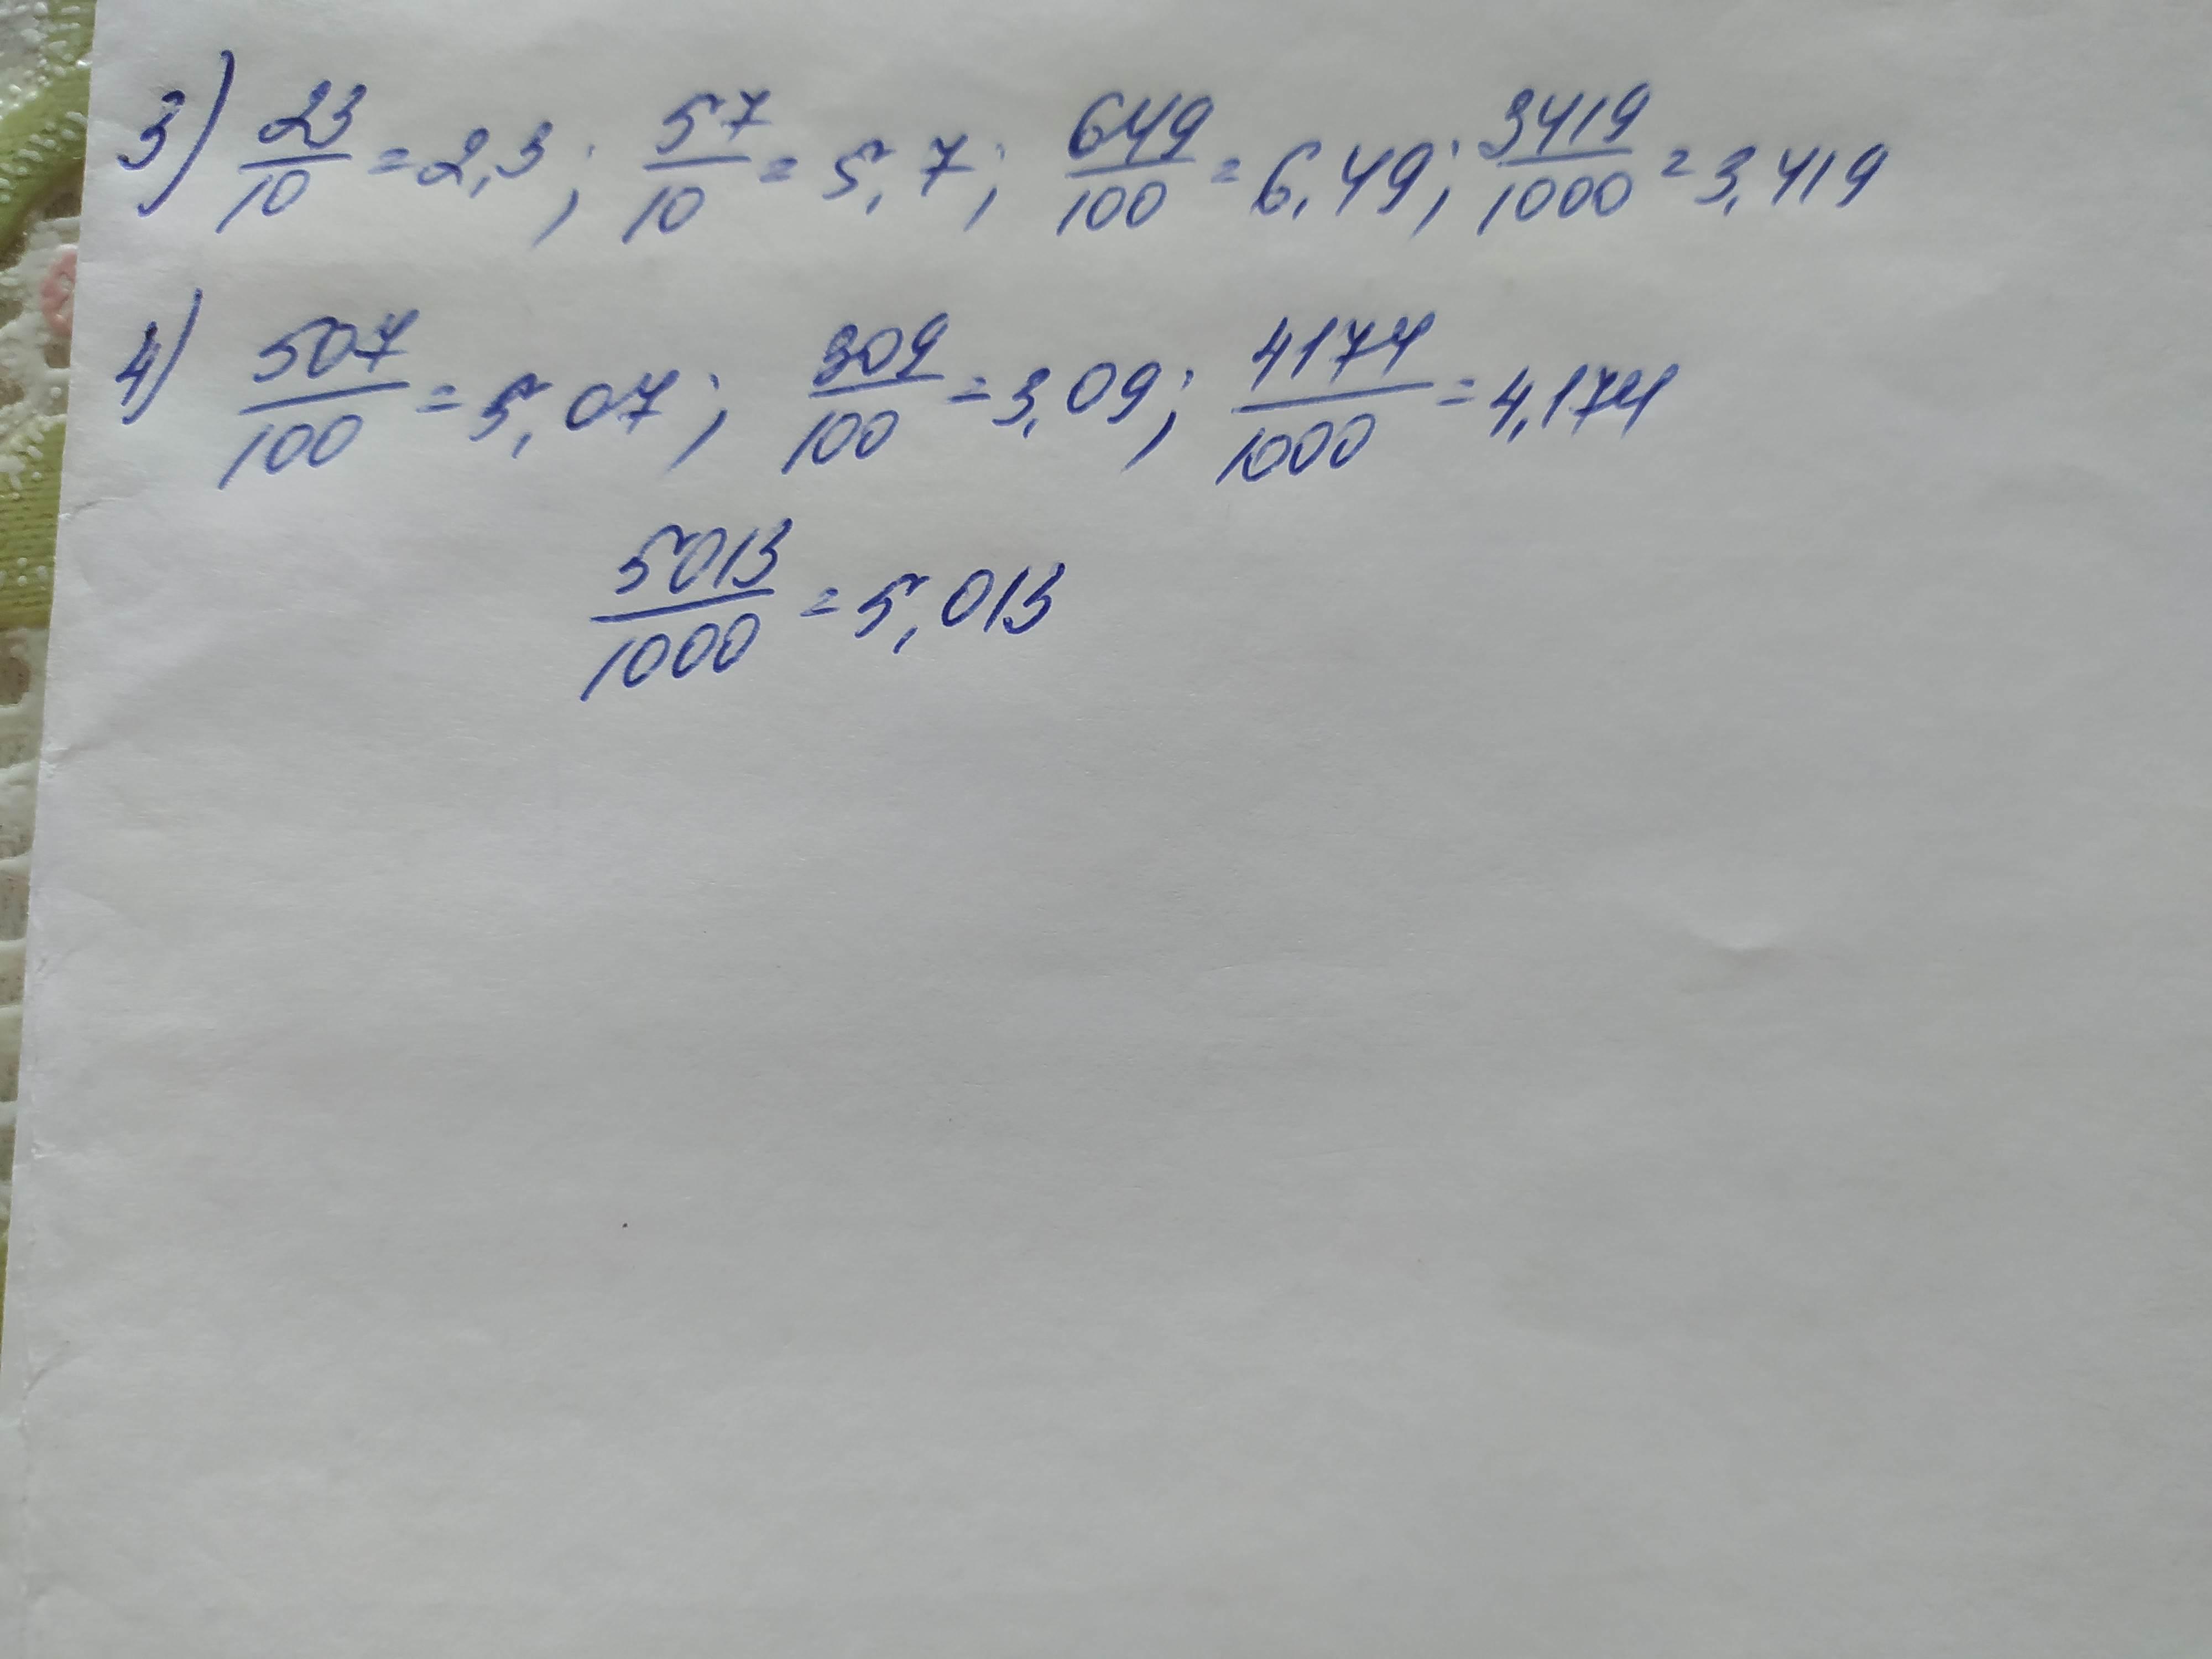 3) 23/10 = 2,3; 57/10 = 5,7; 649/100 = 6,49; 3419/1000 = 3,419
4) 507/100 = 5,07; 309/100 = 3,09; 4174/1000 = 4,174
5013/1000 = 5,013